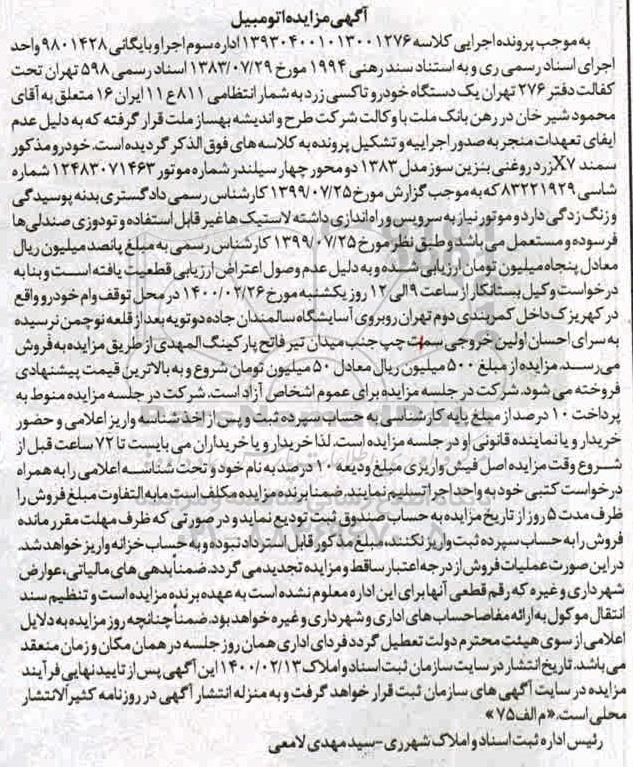 آگهی مزایده اتومبیل
به موجب پرونده اجرایی کلاسه ۱۳۹۳۰۴۰۰۱۰۱۳۰۰۱۲۷۶ اداره سوم اجرا و بایگانی ۹۸۰۱۴۲۸ واحد
اجرای اسناد رسمی ری و به استناد سند رهنی ۱۹۹۴ مورخ ۱۳۸۳/۰۷/۲۹ اسناد رسمی ۵۹۸ تهران تحت
کفالت دفتر ۲۷۶ تهران یک دستگاه خودرو تاکسی زرد به شمار انتظامی ۸۱۱ع۱۱ ایران ۱۶ متعلق به آقای
محمود شیر خان در رهن بانک ملت با وکالت شرکت طرح و اندیشه بهساز ملت قرار گرفته که به دلیل عدم
ایفای تعهدات منجر به صدور اجراییه و تشکیل پرونده به کلاسه های فوق الذکر گردیده است. خودرو مذکور
سمند X۷ زرد روغنی بنزین سوز مدل ۱۳۸۳ دو محور چهار سیلندر شماره موتور ۱۲۴۸۳۰۷۱۴۶۳ شماره
شاسی ۸۳۲۲۱۹۲۹ که به موجب گزارش مورخ ۱۳۹۹/۰۷/۲۵ کارشناس رسمی دادگستری بدنه پوسیدگی
و زنگ زدگی دارد و موتور نیاز به سرویس و راه اندازی داشته لاستیک ها غیر قابل استفاده و تودوزی صندلی ها
فرسوده و مستعمل می باشد و طبق نظر مورخ ۱۳۹۹/۰۷/۲۵ کارشناس رسمی به مبلغ پانصد میلیون ریال
معادل پنجاه میلیون تومان ارزیابی شده و به دلیل عدم وصول اعتراض ارزیابی قطعیت یافته است و بنا به
درخواست وکیل بستانکار از ساعت ۹ الی ۱۲ روز یکشنبه مورخ ۱۴۰۰/۰۲/۲۶ در محل توقف وام خودرو واقع
در کهریزک داخل کمربندی دوم تهران روبروی آسایشگاه سالمندان جاده دو تویه بعد از قلعه نوچمن نرسیده
به سرای احسان اولین خروجی سمت چپ جنب میدان تیر فاتح پارکینگ المهدی از طریق مزایده به فروش
می رسد. مزایده از مبلغ ۵۰۰ میلیون ریال معادل ۵۰ میلیون تومان شروع و به بالاترین قیمت پیشنهادی
فروخته می شود. شرکت در جلسه مزایده برای عموم اشخاص آزاد است. شرکت در جلسه مزایده منوط به
پرداخت ۱۰ درصد از مبلغ پایه کارشناسی به حساب سپرده ثبت و پس از اخذ شناسه واریز اعلامی و حضور
خریدار و یا نماینده قانونی او در جلسه مزایده است. لذا خریدار و یا خریداران می بایست تا ۷۲ ساعت قبل از
شروع وقت مزایده اصل فیش واریزی مبلغ ودیعه ۱۰ درصد به نام خود و تحت شناسه اعلامی را به همراه
درخواست کتبی خود به واحد اجرا تسلیم نمایند. ضمنا برنده مزایده مکلف است مابه التفاوت مبلغ فروش را
ظرف مدت ۵ روز از تاریخ مزایده به حساب صندوق ثبت تودیع نماید و در صورتی که ظرف مهلت مقرر مانده
فروش را به حساب سپرده ثبت واریز نکنند، مبلغ مذکور قابل استرداد نبوده و به حساب خزانه واریز خواهد شد.
در این صورت عملیات فروش از درجه اعتبار ساقط و مزایده تجدید می گردد. ضمناً بدهی های مالیاتی، عوارض
شهرداری و غیره که رقم قطعی آنها برای این اداره معلوم نشده است به عهده برنده مزایده است و تنظیم سند
انتقال موکول به ارائه مفاصا حساب های اداری و شهرداری و غیره خواهد بود. ضمناً چنانچه روز مزایده به دلایل
اعلامی از سوی هیئت محترم دولت تعطیل گردد فردای اداری همان روز جلسه در همان مکان و زمان منعقد
می باشد. تاریخ انتشار در سایت سازمان ثبت اسناد و املاک ۱۴۰۰/۰۲/۱۳ این آگهی پس از تایید نهایی فرآیند
مزایده در سایت آگهی های سازمان ثبت قرار خواهد گرفت و به منزله انتشار آگهی در روزنامه کثیر الانتشار
محلی است. «م الف ۷۵»
رئیس اداره ثبت اسناد و املاک شهرری - سید مهدی لامعی